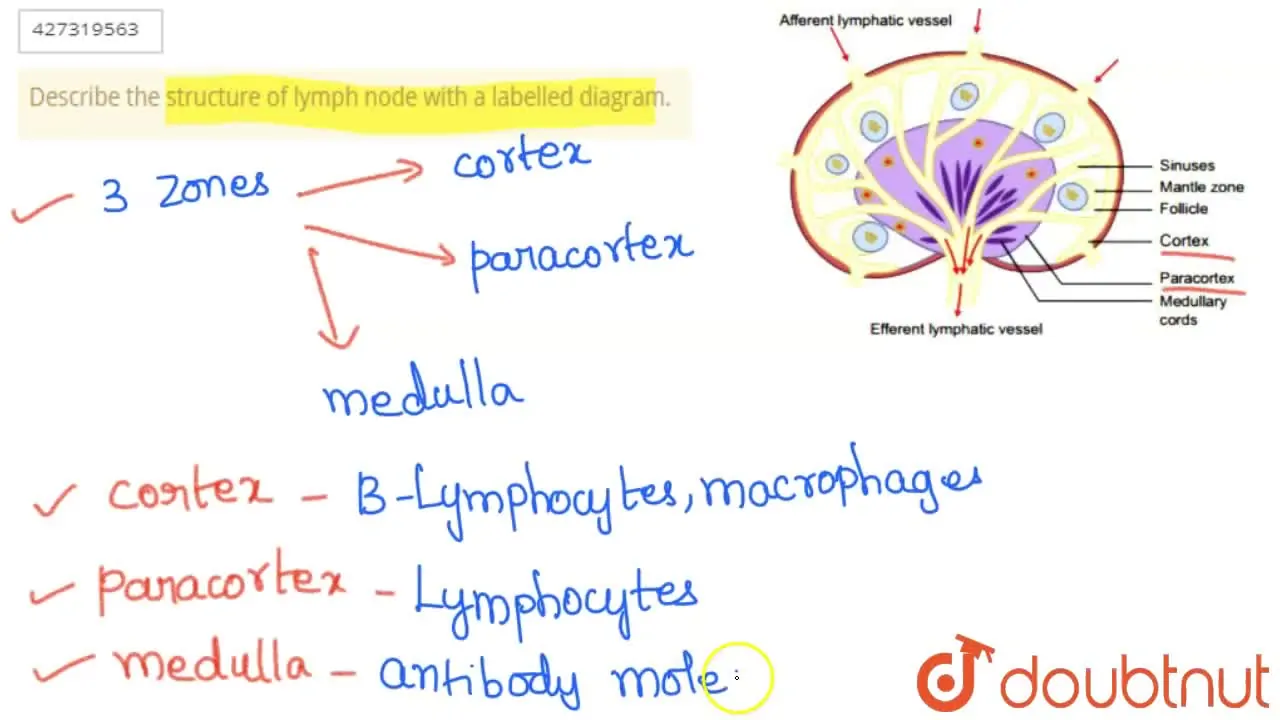 427319563
Describe the structure of lymph node with a labelled diagram.
3 zones
cortex
paracortex
medulla
Afferent lymphatic vessel
Sinuses
Mantle zone
Follicle
Cortex
Paracortex
Medullary
cords
Efferent lymphatic vessel
cortex - B-Lymphocytes, macrophages
paracortex - Lymphocytes
medulla - antibody mole
doubtnut